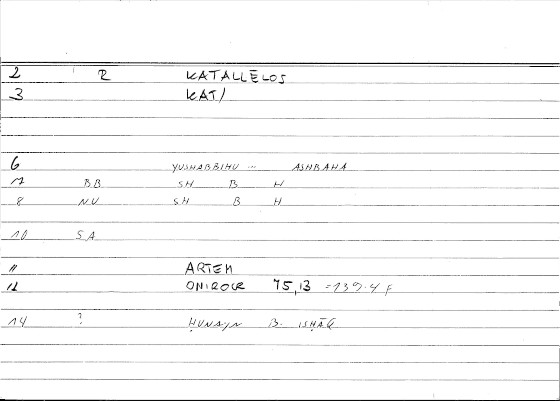 2 R KATALLĒLOS
3 KAT/
6 YUSHABBIHU ... ASHBAHA
7 BB SH B H
8 N.U SH B H
10 S.A
11 ARTEM
12 ONIROCR 75,13 =139.4 F
14 ? ḤUNAYN B. ISḤĀQ